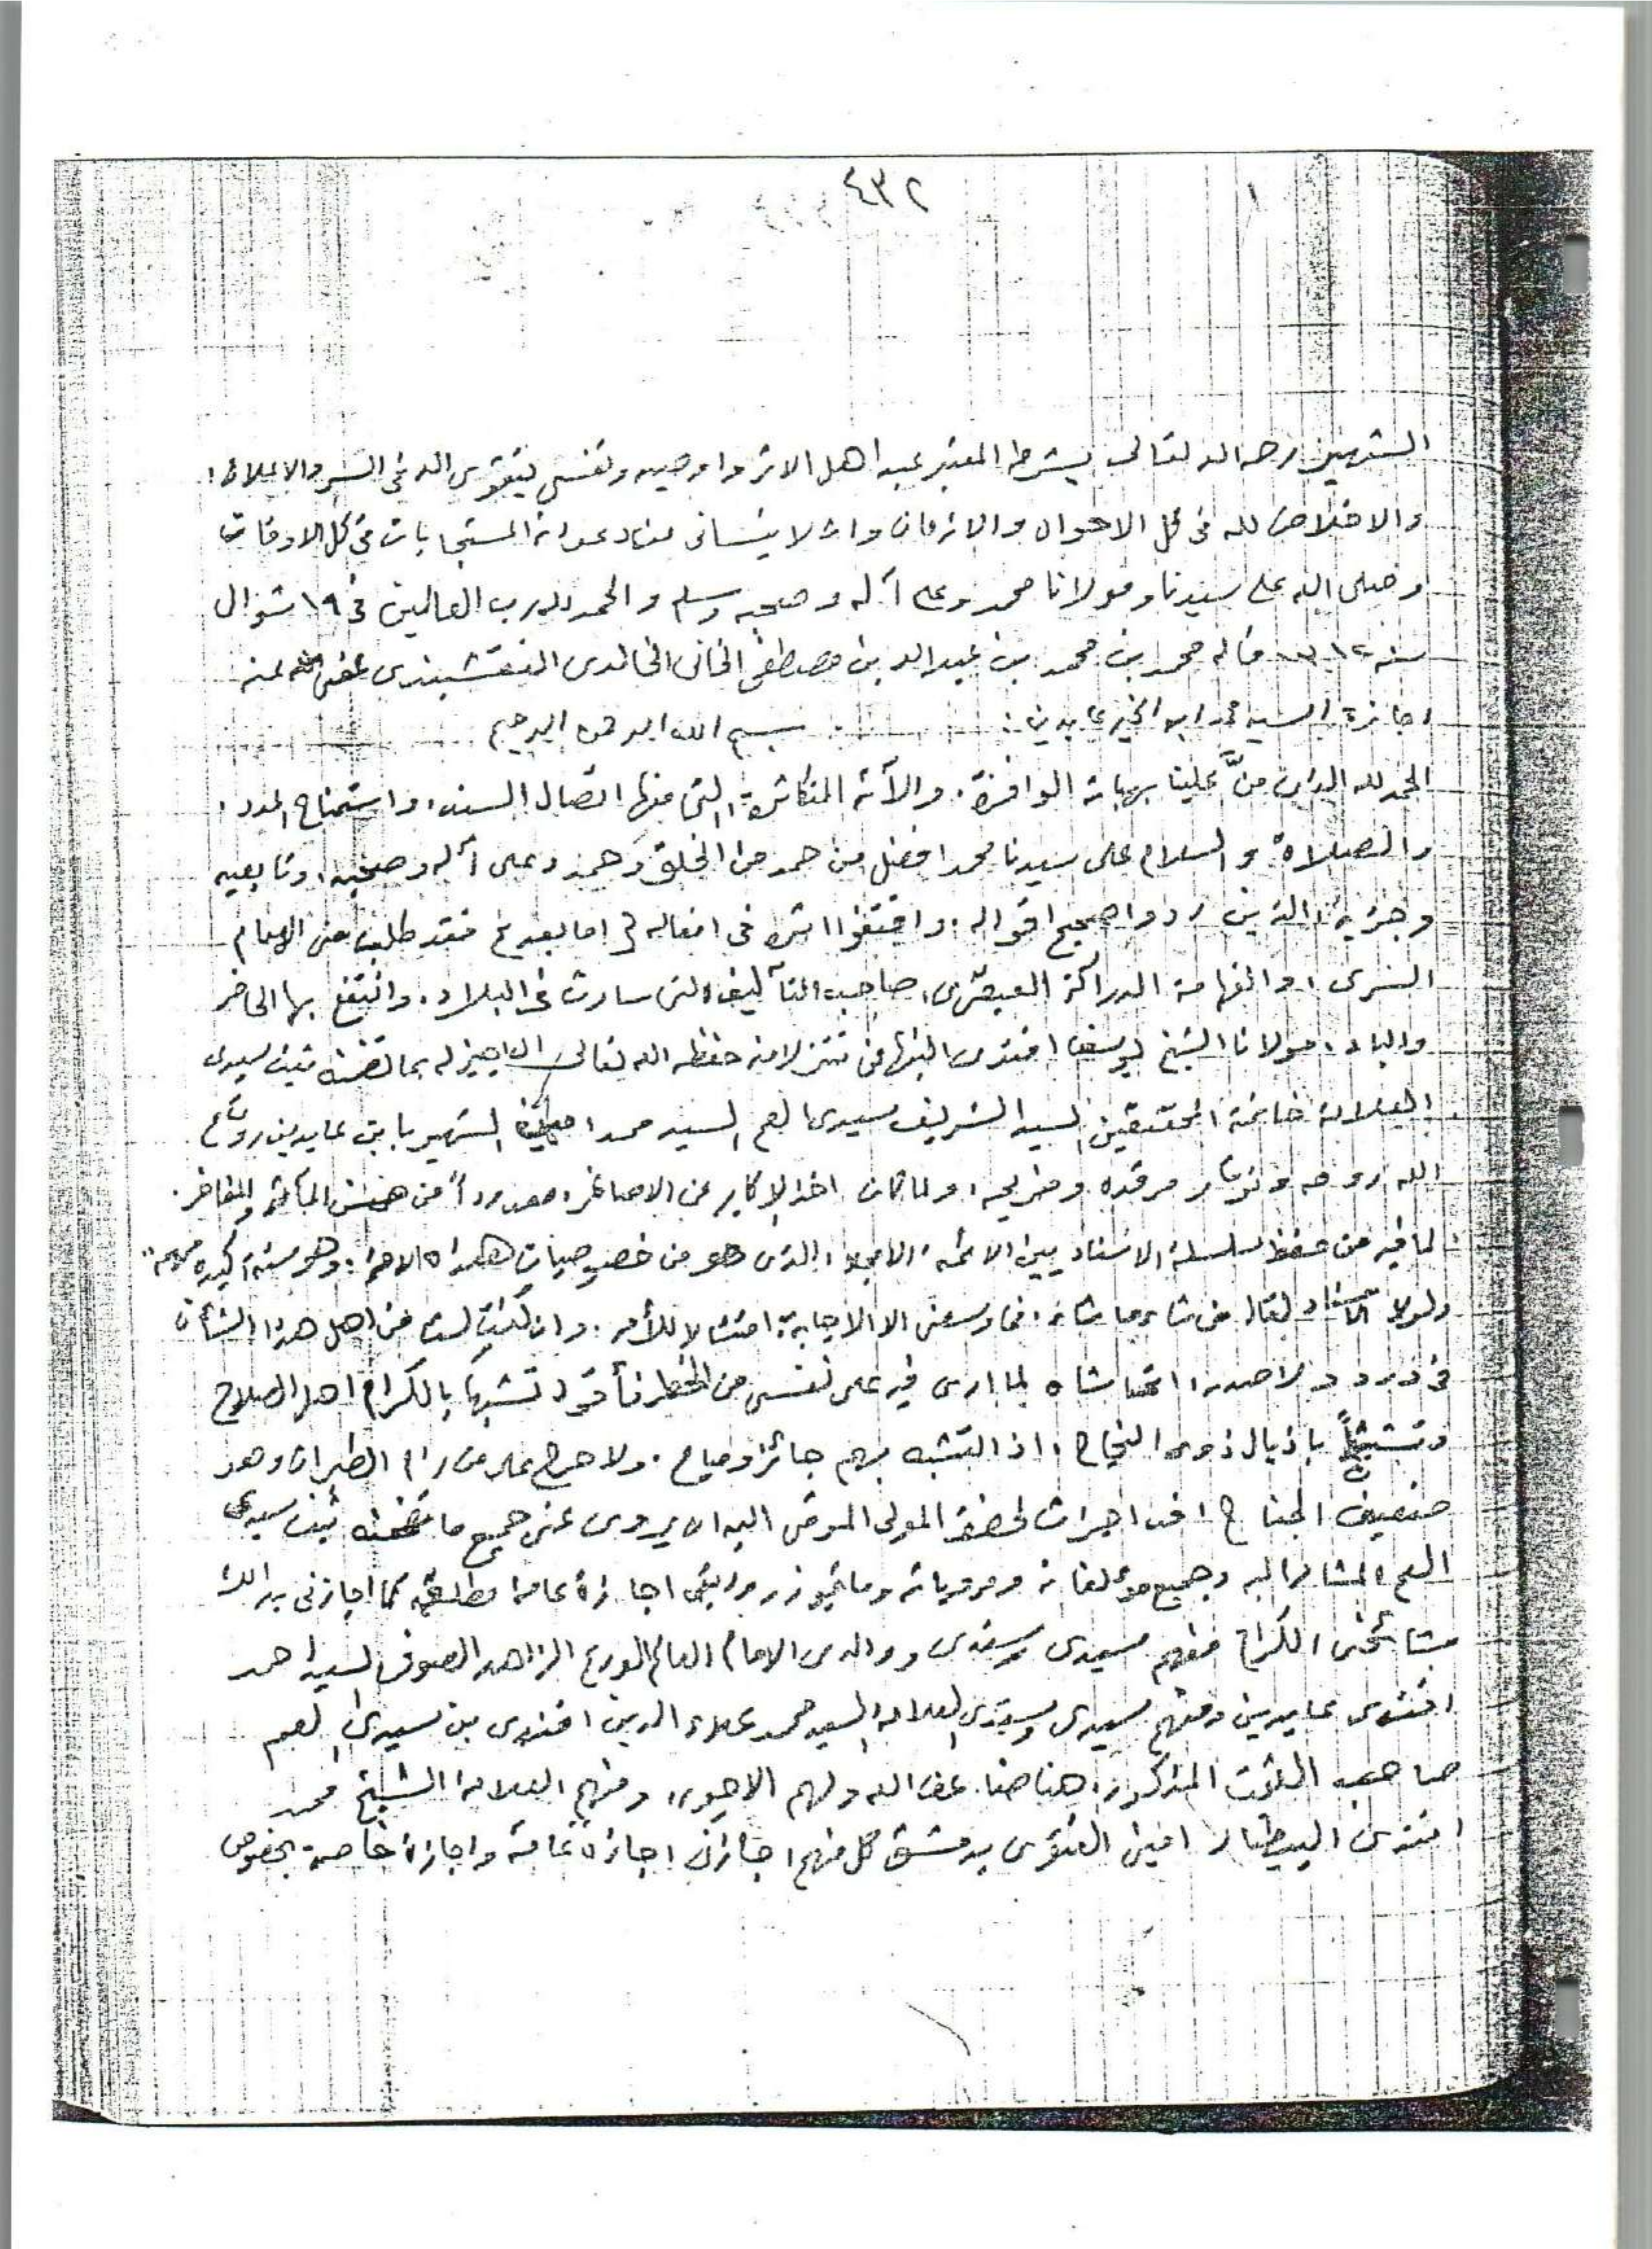 ٤٣٢
الشهير رحمه الله تعالى بشرطه المعتبر عند اهل الاثر واوصيه ونفسي بتقوى الله في السر والاعلان
والاخلاص لله في كل الاحوال والازمان وان لا ينساني من دعواته المستجابات في كل الاوقات
وصلى الله على سيدنا ومولانا محمد وعلى آله وصحبه وسلم والحمد لله رب العالمين في ١٩ شوال
سنه قاله محمد بن محمد بن عبد الله بن مصطفى الخاني الخالدي النقشبندي عفى الله عنه
اجازة السيد محمد ابو الخير عابدين : بسم الله الرحمن الرحيم
الحمد لله الذي منَّ علينا بهباته الوافرة . وآلائه المتكاثرة التي منها اتصال السند، واستمناح المدد ،
والصلاة والسلام على سيدنا محمد افضل من حمد من الخلق وحمد وعلى آله وصحبه، وتابعيه
وحزبه، الذين رووا صحيح اقواله . واقتفوا اثره في افعاله اما بعد فقد طلب مني الامام
السري ، والفهامة الدراكة العبقري، صاحب التآليف التي سارت في البلاد . وانتفع بها الحاضر
والباد ، مولانا الشيخ يوسف افندي النبهاني حفظه الله تعالى ان اجيز له بما تضمنه ثبت سيدي
العلامة خاتمة المحققين السيد الشريف سيدي العم السيد محمد امين الشهير بابن عابدين روح
الله روحه ونور مرقده وضريحه، ولما كان اخذ الاكابر عن الاصاغر، معدوداً من المآثر والمفاخر .
لما فيه من حفظ سلسلة الاسناد بين الائمة الامجاد ، الذي هو من خصوصيات هذه الامة، وهو سنة اكيده مهمه
ولولا الاسناد لقال من شاء ما شاء . فما وسعني الا الاجابة، امتثالا للأمر . وان كنت لست من اهل هذا الشأن
في ورد ولا صدر، اتحاشاه لما ارى فيه على نفسي من الخطر فأقول تشبها بالكرام اهل الصلاح
وتشبثاً باذيال ذوي النجاح ، اذ التشبه بهم جائز ومباح . ولا حرج على من رام الطيران وهو
ضعيف الجناح اني اجزت لحضرة المولى المومى اليه ان يروي عني جميع ما تضمنه ثبت سيدي
العم المشار اليه وجميع مؤلفاته ومروياته وما تجوز روايتي اجازة عامة مطلقة كما اجازني بذلك
مشائخي الكرام فمنهم سيدي وسندي ووالدي الامام العالم الورع الزاهد الصوفي السيد احمد
افندي عابدين ومنهم سيدي وسندي العلامة السيد محمد علاء الدين افندي بن سيدي العم
صاحب الثبت المذكور، ضاعف الله ولهم الاجور، ومنهم العلامة الشيخ محمد
افندي البيطار امين الفتوى بدمشق كل منهم اجازني اجازة عامة واجازة خاصة بخصوص